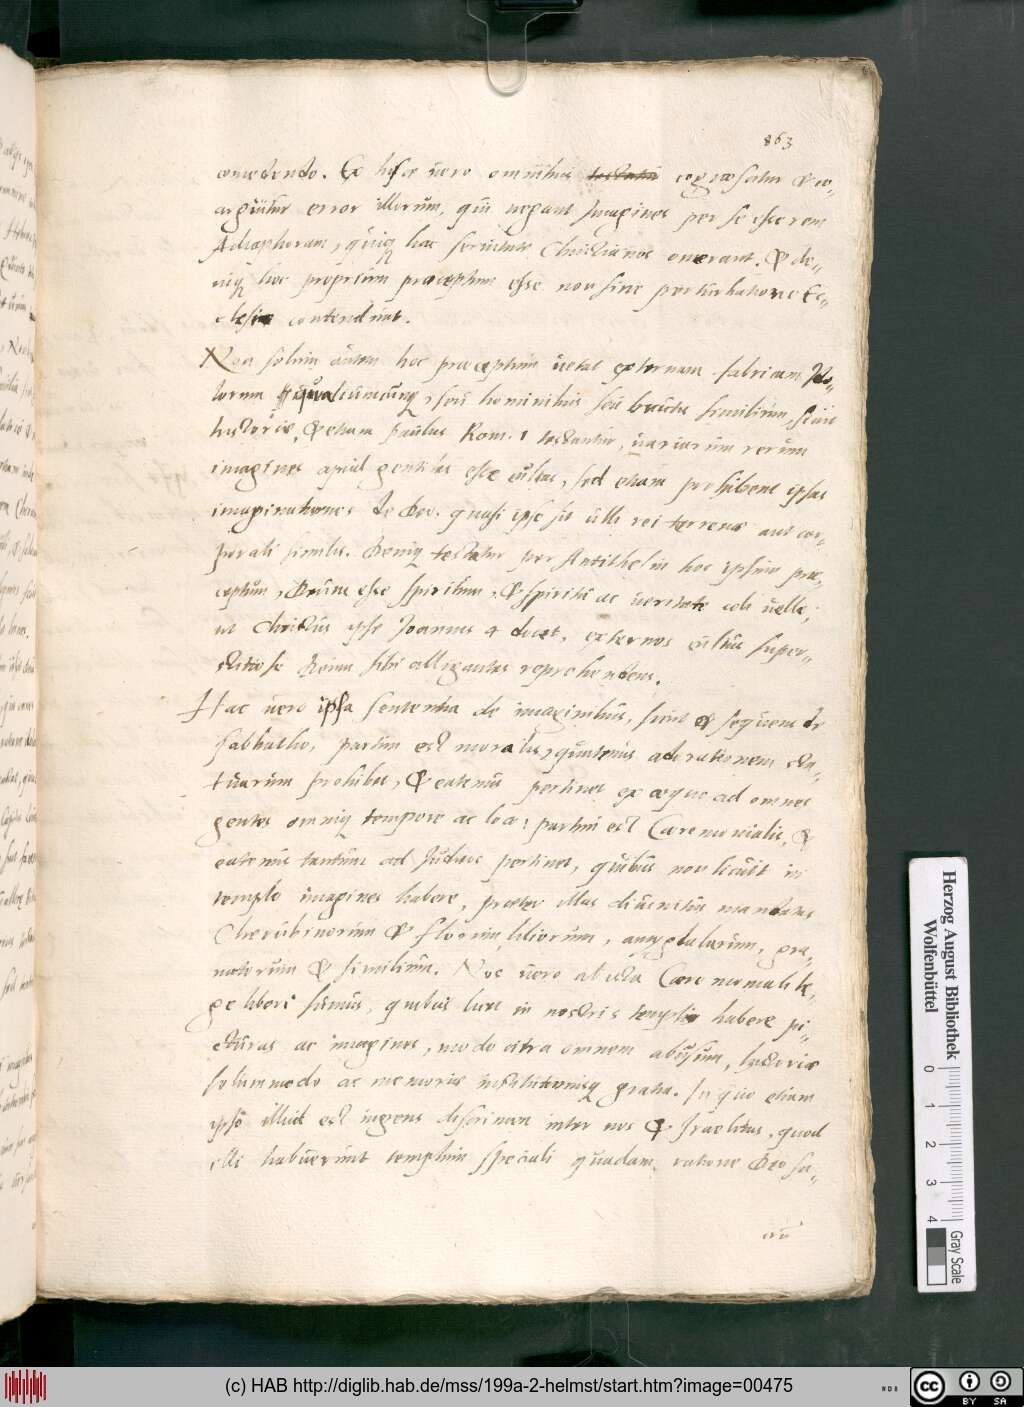 863
comedendo. Ex hisce vero omnibus cognoscitur & co-
arguitur error illorum, qui negant Imagines per se esse rem
Adiaphoram, quiq hac servitute Christianos onerant. & de-
niq hoc proprium praeceptum esse non sine perturbatione Ec-
clesiae contendunt.
Non solum autem hoc praeceptum vetat externam fabricam Ido-
lorum qualiumcunq, seu hominibus seu brutis similium, sicut
historiae, & etiam Paulus Rom. 1 testantur, variarum rerum
imagines apud gentiles esse cultas, sed etiam prohibent ipsas
imaginationes de Deo. quasi ipse sit ulli rei terrenae aut cor-
porali similis. Deniq testatur per Antithesin hoc ipsum prae-
ceptum, Deum esse spiritum, & spiritu ac veritate coli velle,
ut Christus ipse Joannis 4 docet, externos cultus super-
stitiose Deum sibi alligantes reprehendens.
Haec vero ipsa sententia de imaginibus, sicut & sequens de
sabbatho, partim est moralis, quatenus adorationem sta-
tuarum prohibet, & eatenus pertinet ex aequo ad omnes
gentes omniq tempore ac loco: partim est Caeremonialis, &
eatenus tantum ad Judaeos pertinet, quibus non licuit in
templo imagines habere, praeter illas divinitus mandatas
Cherubinorum & florum, liliorum, amygdalarum, gra-
natorum & similium. Nos vero ab ista Caeremoniali le-
ge liberi sumus, quibus licet in nostris templis habere pi-
cturas ac imagines, modo citra omnem abusum, historiae
solummodo ac memoriae institutionisq gratia. In quo etiam
ipso illud est ingens discrimen inter nos & Israelitas, quod
illi habuerunt templum speciali quadam ratione Deo sa-
Herzog August Bibliothek
Wolfenbüttel
0 1 2 3 4
Gray Scale
(c) HAB http://diglib.hab.de/mss/199a-2-helmst/start.htm?image=00475
cc BY SA